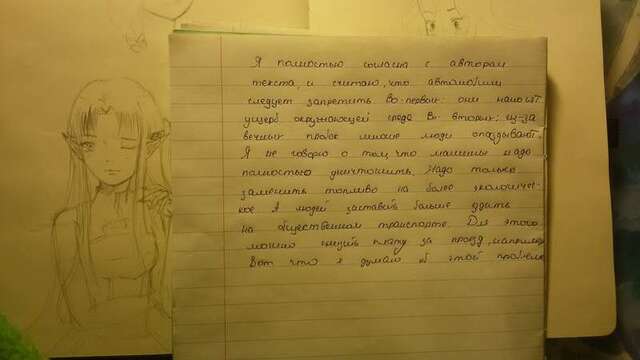 Я полностью согласна с автором
текста, и считаю, что автомобили
следует запретить. Во-первых: они наносят
ущерб окружающей среде. Во вторых: из-за
вечных пробок многие люди опаздывают.
Я не говорю о том, что машины надо
полностью уничтожить. Надо только
заменить топливо на более экологичес-
кое. А людей заставить больше ездить
на общественном транспорте. Для этого
можно снизить плату за проезд, например
Вот что я думаю об этой проблеме